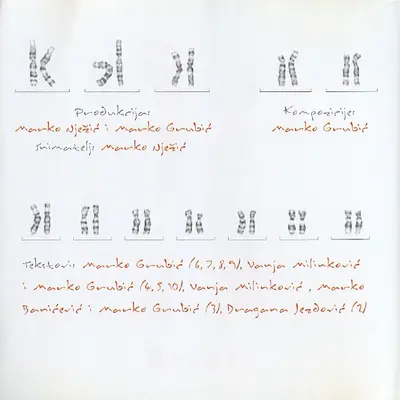 Produkcija:
Marko Nježić i Marko Grubić
Snimatelj: Marko Nježić
Kompozicije:
Marko Grubić
Tekstovi: Marko Grubić (6,7,8,9), Vanja Milinković
i Marko Grubić (4,5,10), Vanja Milinković, Marko
Banićević i Marko Grubić (3), Dragana Jezdović (2)